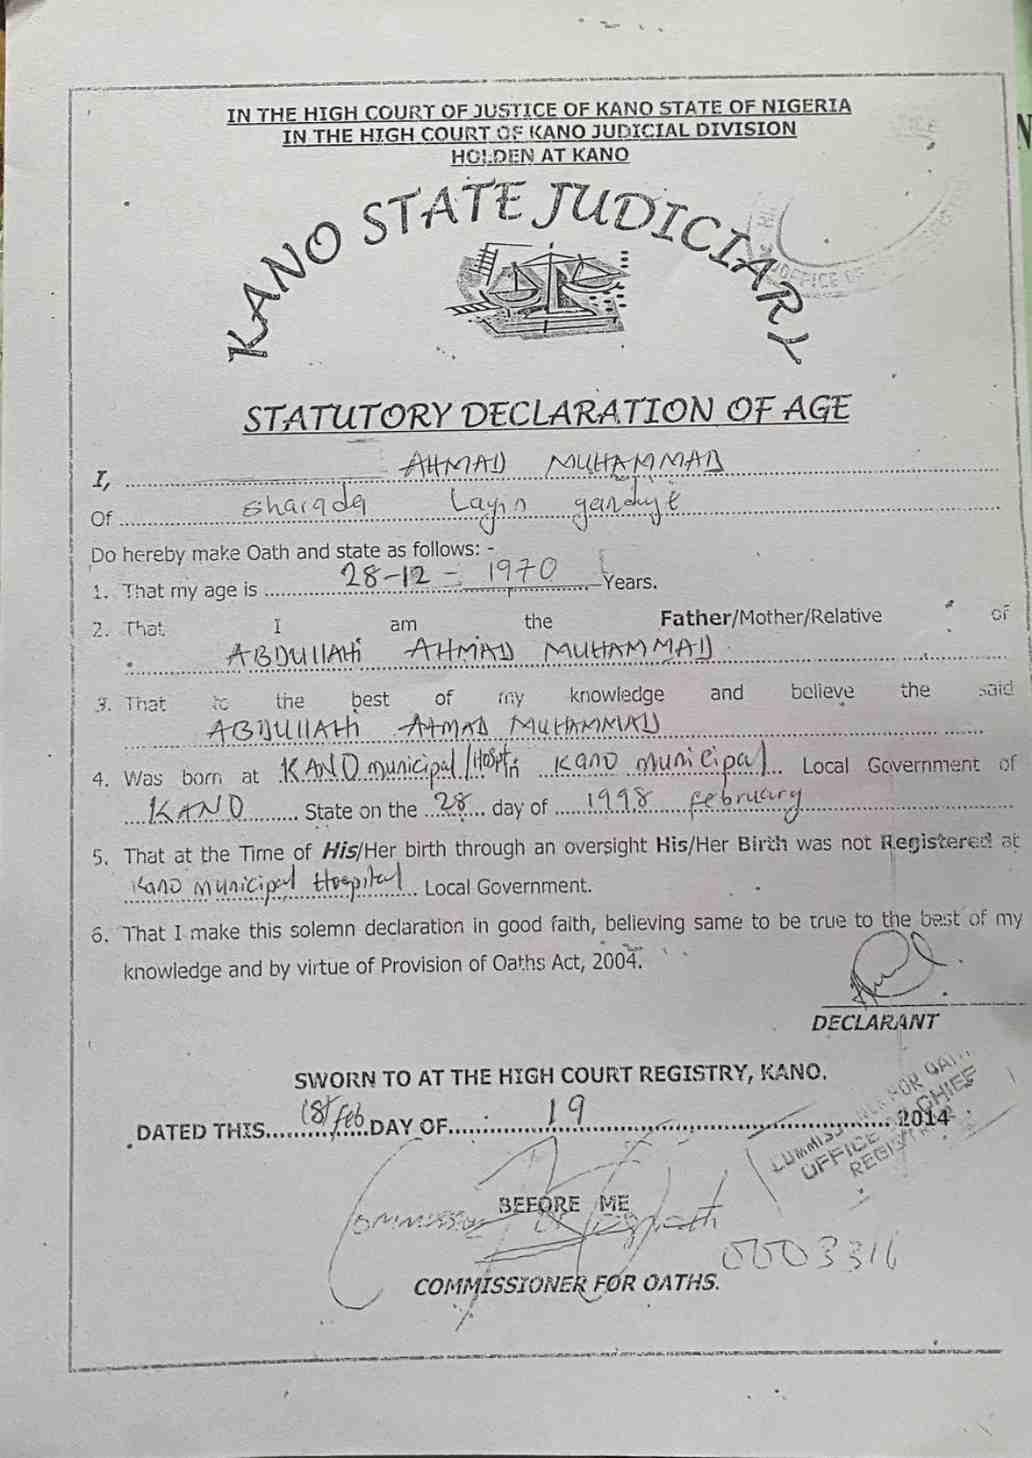 IN THE HIGH COURT OF JUSTICE OF KANO STATE OF NIGERIA
IN THE HIGH COURT OF KANO JUDICIAL DIVISION
HOLDEN AT KANO
KANO STATE JUDICIARY
OFFICE OF
STATUTORY DECLARATION OF AGE
I, AHMAD MUHAMMAD
Of sharada Layin ganduje
Do hereby make Oath and state as follows: -
1. That my age is 28-12-1970 Years.
2. That I am the Father/Mother/Relative of
ABDULLAHI AHMAD MUHAMMAD
3. That to the best of my knowledge and believe the said
ABDULLAHI AHMAD MUHAMMAD
4. Was born at KANO municipal/Hospt kano municipal Local Government of
KANO State on the 28 day of 1998 february
5. That at the Time of His/Her birth through an oversight His/Her Birth was not Registered at
Kano municipal Hospital Local Government.
6. That I make this solemn declaration in good faith, believing same to be true to the best of my
knowledge and by virtue of Provision of Oaths Act, 2004.
DECLARANT
SWORN TO AT THE HIGH COURT REGISTRY, KANO.
DATED THIS 18 feb DAY OF 19 2014
COMMISSIONER FOR OATH
OFFICE CHIEF
REGISTRAR
BEFORE ME
COMMISSIONER FOR OATHS.
0003316